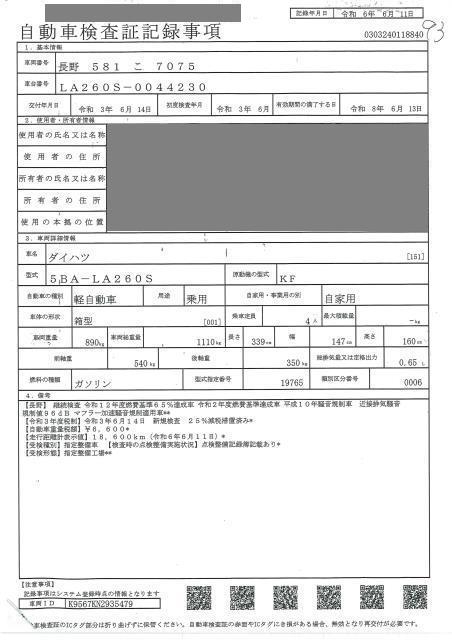 記録年月日 令和 6年 6月11日
自動車検査証記録事項
0303240118840
93
1. 基本情報
車両番号 長野 581 こ 7075
車台番号 LA260S-0044230
交付年月日 令和 3年 6月 14日 初度検査年月 令和 3年 6月 有効期間の満了する日 令和 8年 6月 13日
2. 使用者・所有者情報
使用者の氏名又は名称
使用者の住所
所有者の氏名又は名称
所有者の住所
使用の本拠の位置
3. 車両詳細情報
車名 ダイハツ [151]
型式 5BA-LA260S 原動機の型式 KF
自動車の種別 軽自動車 用途 乗用 自家用・事業用の別 自家用
車体の形状 箱型 [001] 乗車定員 4人 最大積載量 -kg
車両重量 890kg 車両総重量 1110kg 長さ 339cm 幅 147cm 高さ 160cm
前軸重 540kg 後軸重 350kg 総排気量又は定格出力 0.65 L
燃料の種類 ガソリン 型式指定番号 19765 類別区分番号 0006
4. 備考
【長野】 継続検査 令和12年度燃費基準65%達成車 令和2年度燃費基準達成車 平成10年騒音規制車 近接排気騒音
規制値96dB マフラー加速騒音規制適用車**
【令和3年度税制】令和3年6月14日 新規検査 25%減税措置済み*
【自動車重量税額】¥6,600*
【走行距離計表示値】18,600km (令和6年6月11日)*
【受検種別】指定整備車 【検査時の点検整備実施状況】点検整備記録簿記載あり*
【受検形態】指定整備工場**
【注意事項】
記録事項はシステム登録時点の情報となります
車両ID K9567KN2935479
車検査証のICタグ部分は折り曲げずに保管ください。自動車検査証の券面やICタグに き損がある場合、無効となり再交付が必要です。